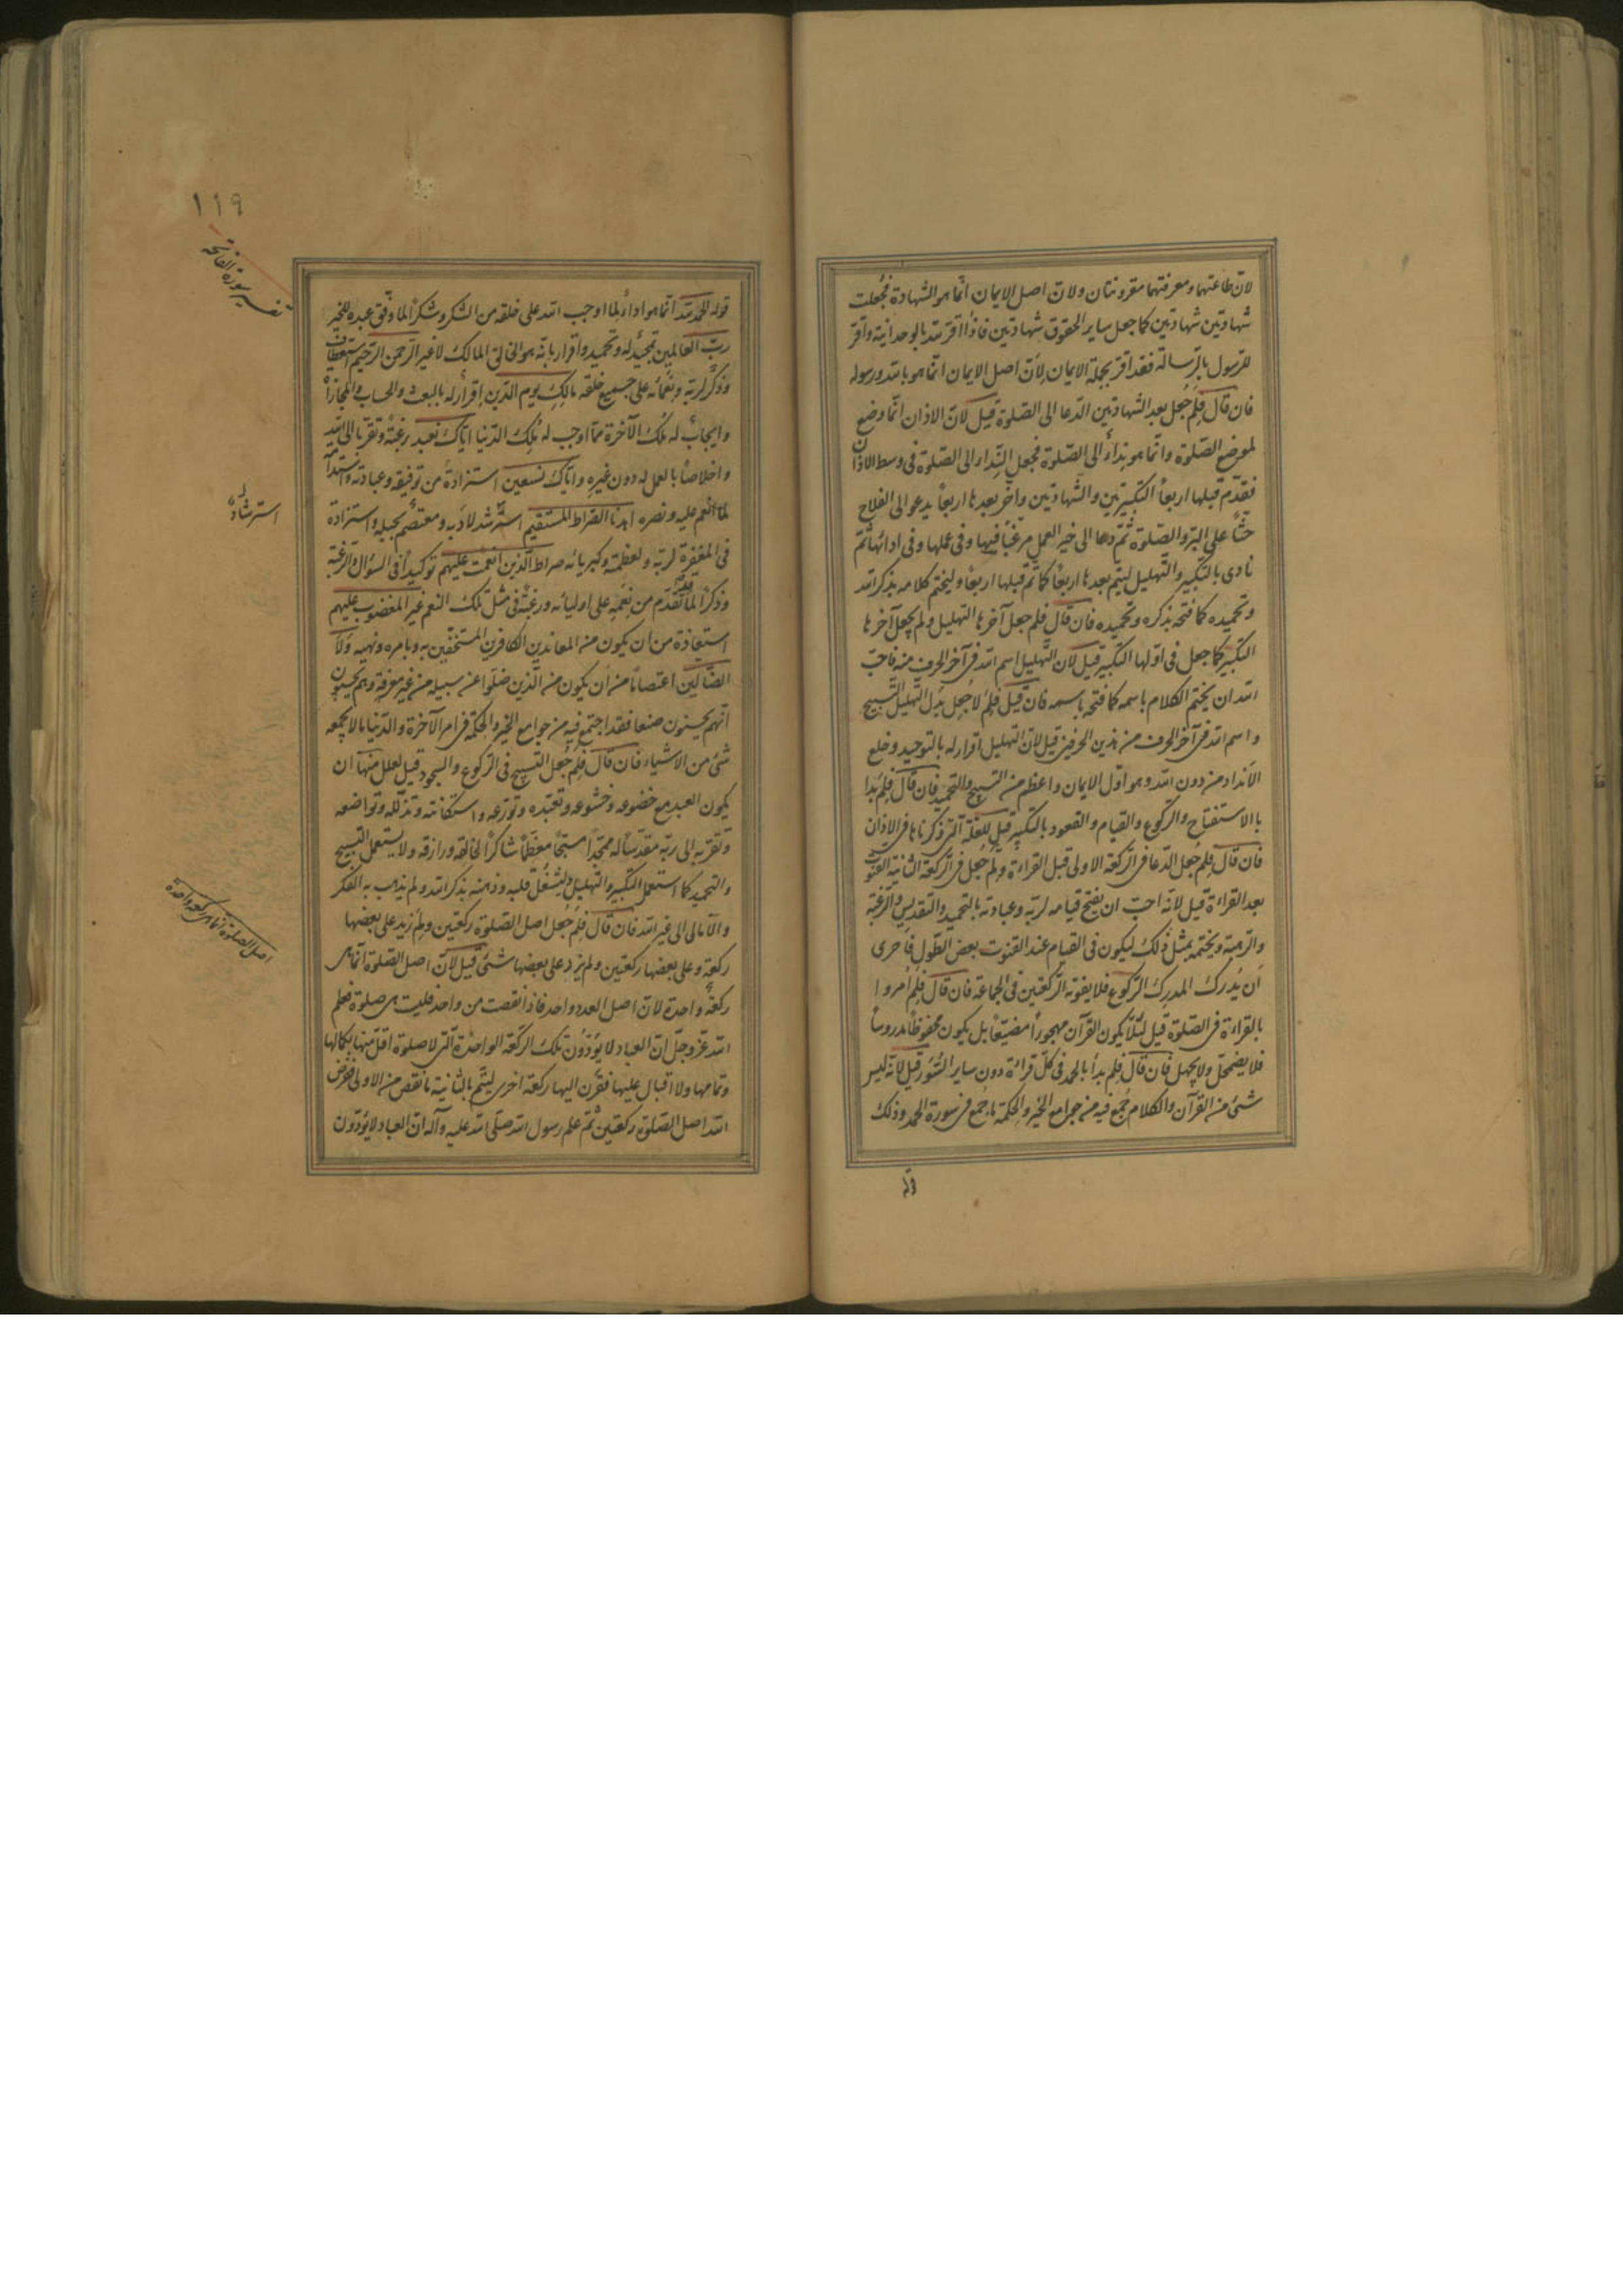 لانّ طاعتهما ومعرفتهما مقرونتان ولانّ اصل الايمان انّما هو الشهادة فجُعلت
شهادتين شهادتين كما جعل ساير الحقوق شهادتين فاذا اقرّ لله بالوحدانية واقرّ
للرسول بالرّسالة فقد اقرّ بجملة الايمان لِانّ اصل الايمان انّما هو بالله ورسوله
فان قال فلِمَ جُعل بعد الشهادتين الدّعا الى الصّلوة قيل لانّ الاذان انّما وضع
لموضع الصّلوة وانّما هو نداءٌ الى الصّلوة فجعل النّداء الى الصّلوة فى وسط الاذان
فقدّم قبلها اربعاً التكبيرتين والشّهادتين واخّر بعدها اربعاً يدعو الى الفلاح
حثّاً على البرّ والصّلوة ثمّ دعا الى خير العمل مرغّباً فيها وفى عملها وفى ادائها ثمّ
نادى بالتكبير والتّهليل ليتم بعدها اربعاً كما تمّ قبلها اربعاً وليختم كلامه بذكر الله
وتحميده كما فتحه بذكره وتحميده فان قال فلم جعل آخرها التهليل ولم يجعل آخرها
التكبير كما جعل فى اوّلها التكبير قيل لانّ التّهليل اسم الله فى آخر الحرف منه فاحبّ
الله ان يختم الكلام باسمه كما فتحه باسمه فان قيل فلِمَ لا جُعل بدل التهليل التّسبيح
واسم الله فى آخر الحرف من هذين الحرفين قيل لانّ التهليل اقرار له بالتوحيد وخلع
الانداد من دون الله وهو اوّل الايمان واعظم من التسبيح والتحميد فان قال فلِمَ بدا
باالاستفتاح والركوع والقيام والقعود بالتكبير قيل للعلّة الّتى ذكرناها فى الاذان
فان قال فلِمَ جُعل الدّعا فى الرّكعة الاولى قبل القراءة ولِمَ جُعل فى الرّكعة الثانية القنوت
بعد القراءة قيل لانّه احبّ ان يفتح قيامه لربّه وعبادته بالتحميد والتّقديس والرّغبة
والرّهبة ويختمه بمثل ذلك ليكون فى القيام عند القنوت بعض الطّول فاَحرى
اَن يُدرك المدرِك الرّكوع فلا يفوته الرّكعتين فى الجماعة فان قال فلِمَ اُمروا
بالقراءة فى الصّلوة قيل لئلّا يكون القرآن مهجوراً مضيّعاً بل يكون محفوظاً مدروساً
فلا يضمحلّ ولا يجهل فان قال فلِم بدأ بالحمد فى كلّ قراءة دون ساير السّور قيل لانّه ليس
شئ من القرآن والكلام جُمع فيه من جوامع الخير والحكمة ما جمع فى سورة الحمد وذلك
١١٩
تفسير سورة الفاتحة
قوله الحمد لله انّما هو اداءٌ لما اوجب الله على خلقه من الشكر وشكرٌ لما وفّق عبده للخير
ربّ العالمين تمجيدٌ له وتحميد واقرار بانّه هو الخالق المالك لا غير الرّحمن الرّحيم استعطاف
وذكرٌ لربّه ونعمائه على جميع خلقه مالِكِ يوم الدّين اِقرارٌ له بالبعث والحساب والمجازاة
وايجابٌ له مُلك الآخرة ممّا اوجب له مُلك الدّنيا ايّاك نعبد رغبة وتقرّباً الى الله
واخلاصاً بالعمل له دون غيره وايّاك نستعين استزادة من توفيقه وعبادته واستدامة
لما انعم عليه ونصره اهدنا الصّراط المستقيم استرشد لادبه ومعتصم بحبله واستزادة
استرشادٌ
فى المغفرة لربّه ولعظمته وكبريائه صراط الّذين انعمت عليهم توكيداً فى السؤال والرّغبة
وذكراً لما تقدّم من نِعَمِه على اوليائه ورغبة فى مثل تلك النعم غير المغضوب عليهم
استعاذة من ان يكون من المعاندين الكافرين المستخفّين به وبامره ونهيه ولا
الضّالّين اعتصاماً من اَن يكون من الّذين ضلّوا عن سبيله من غير معرفة وهم يحسبون
انّهم يحسنون صنعا فقد اجتمع فيه من جوامع الخير والحكمة فى امر الآخرة والدّنيا ما لا يجمعه
شئ من الاشياء فان قال فلِمَ جُعل التسبيح فى الركوع والسجود قيل لعلل منها ان
يكون العبد مع خضوعه وخشوعه وتعبّده وتورّعه واستكانته وتذلّله وتواضعه
وتقرّبه الى ربّه مقدّساً له ممجّداً مسبّحاً معظّماً شاكراً لخالقه ورازقه ولا يستعمل التسبيح
والتحميد كما استعمل التكبير والتهليل وليشغل قلبه وذهنه بذكر الله ولم يذهب به الفكر
والآمالى الى غير الله فان قال فلِمَ جُعل اصل الصّلوة ركعتين ولِمَ زيد على بعضها
اصل الصلوة انما هى ركعة واحدة
ركعة وعلى بعضها ركعتين ولم يزد على بعضها شئ قيل لانّ اصل الصّلوة انّما هى
ركعة واحدة لانّ اصل العدد واحد فاذا نقصت من واحد فليست هى صلوة فعلم
الله عزّ وجلّ انّ العباد لا يؤدّون تلك الركعة الواحدة الّتى لا صلوة اقلّ منها بكمالها
وتمامها ولا اقبال عليها فقرن اليها ركعة اخرى ليتم بالثانية ما نقص من الاولى ففرض
الله اصل الصّلوة ركعتين ثمّ علم رسول الله صلّى الله عليه وآله ان العباد لا يؤدّون